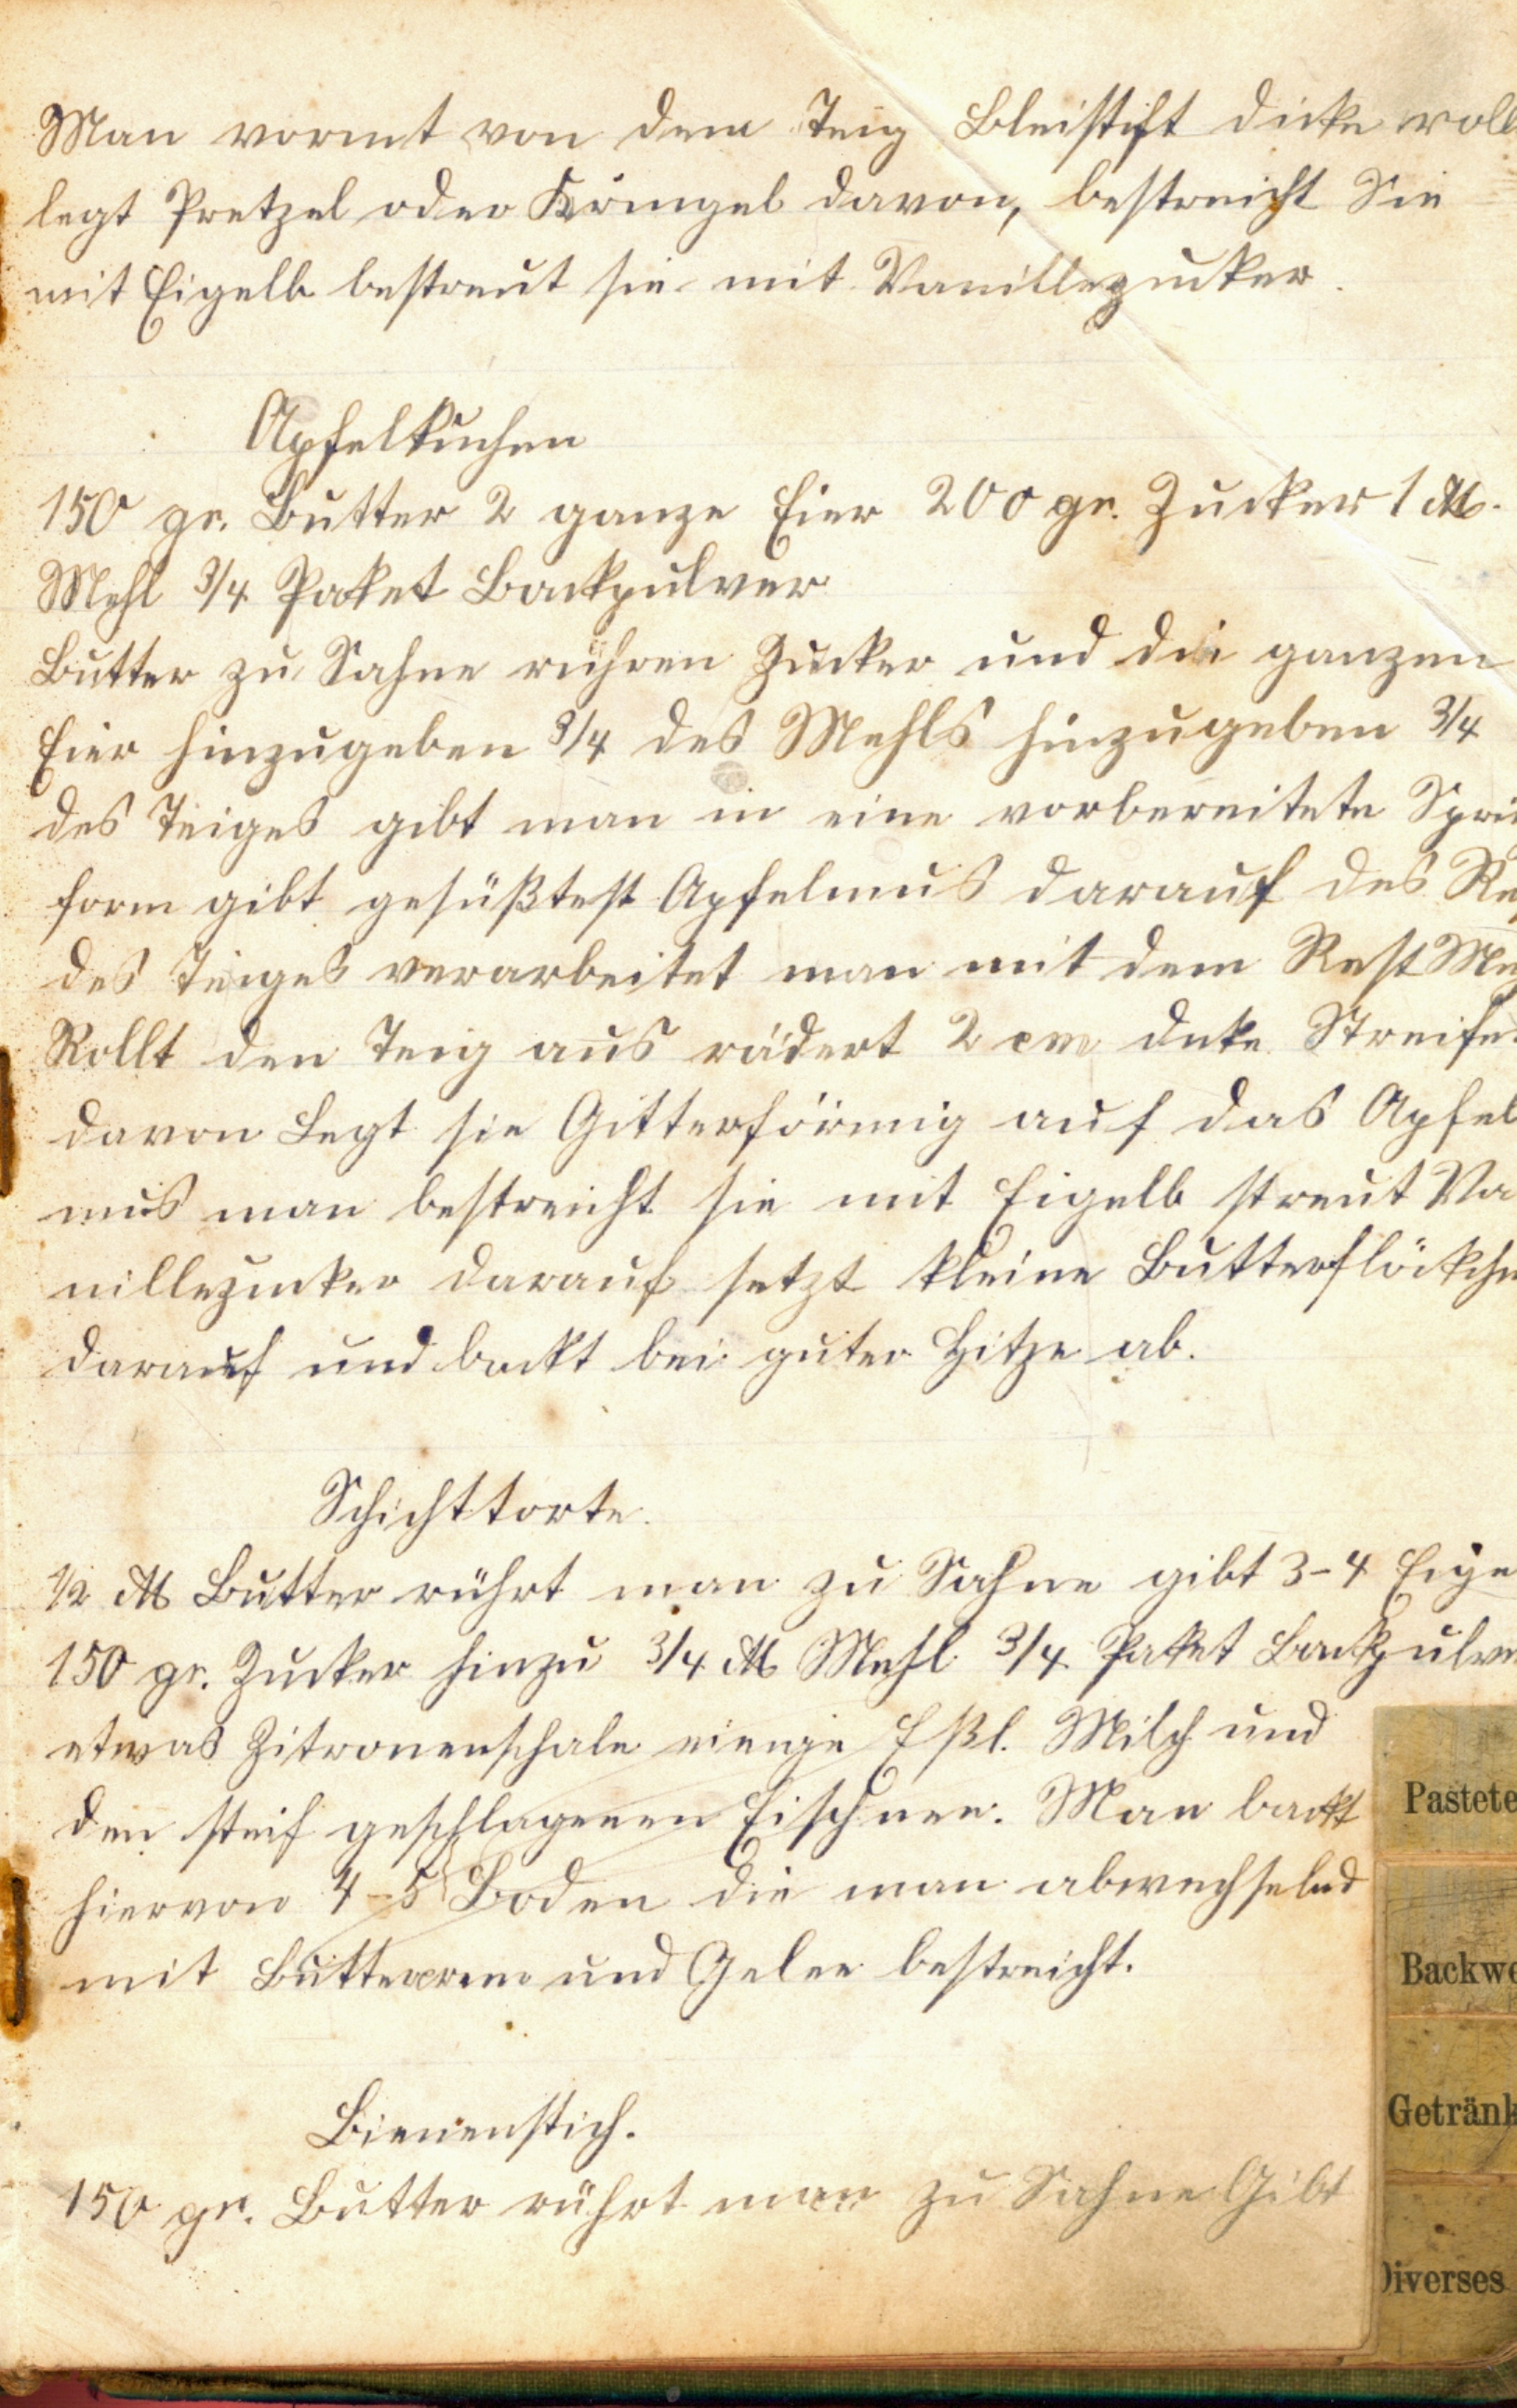 Man vormt von dem Teig Bleistift dicke roll
legt Pretzel oder Kringel davon, bestreicht Sie
mit Eigelb bestreut sie mit Vanillezucker.
Apfelkuchen
150 gr. Butter 2 ganze Eier 200 gr. Zucker 1 ℔.
Mehl 3/4 Paket Backpulver
Butter zu Sahne rühren Zucker und die ganzen
Eier hinzugeben 3/4 des Mehls hinzugeben 3/4
des Teiges gibt man in eine vorbereitete Sprin
form gibt gesüßtest Apfelmus darauf des Re
des Teiges verarbeitet man mit dem Rest Me
Rollt den Teig aus rädert 2 cm dicke Streife
davon Legt sie Gitterförmig auf das Apfel
mus man bestreicht sie mit Eigelb streut Va
nillezucker darauf setzt kleine Butterflöckche
darauf und backt bei guter Hitze ab.
Schichttorte.
1/2 ℔ Butter rührt man zu Sahne gibt 3-4 Eige
150 gr. Zucker hinzu 3/4 ℔ Mehl 3/4 Paket Backpulve
etwas Zitronenschale einige Eßl. Milch und
den steif geschlagenen Eischnee. Man backt
hiervon 4-5 Boden die man abwechselnd
mit Buttercrem und Gelee bestreicht.
Bienenstich.
150 gr. Butter rührt man zu Sahne Gibt
Pastete
Backwe
Getränk
Diverses